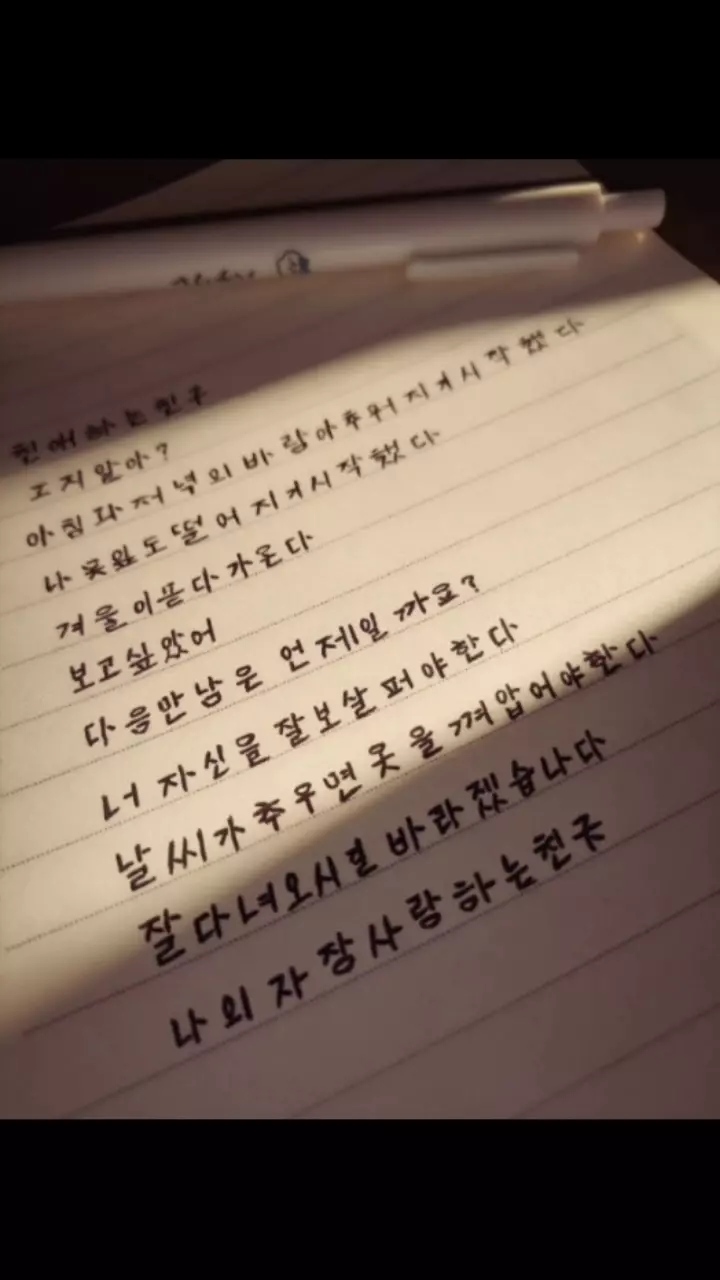 친애하는친구
고지알아?
아침과저녁의바람아추워지거시작했다
나뭇잎도떨어지거시작했다
겨울이뜯다가온다
보고싶았어
다음만남은언제일까요?
너자신을잘보살펴야한다
날씨가추우면옷을껴압어야한다
잘다녀오시길바라겠습나다
나의자장사랑하는친구